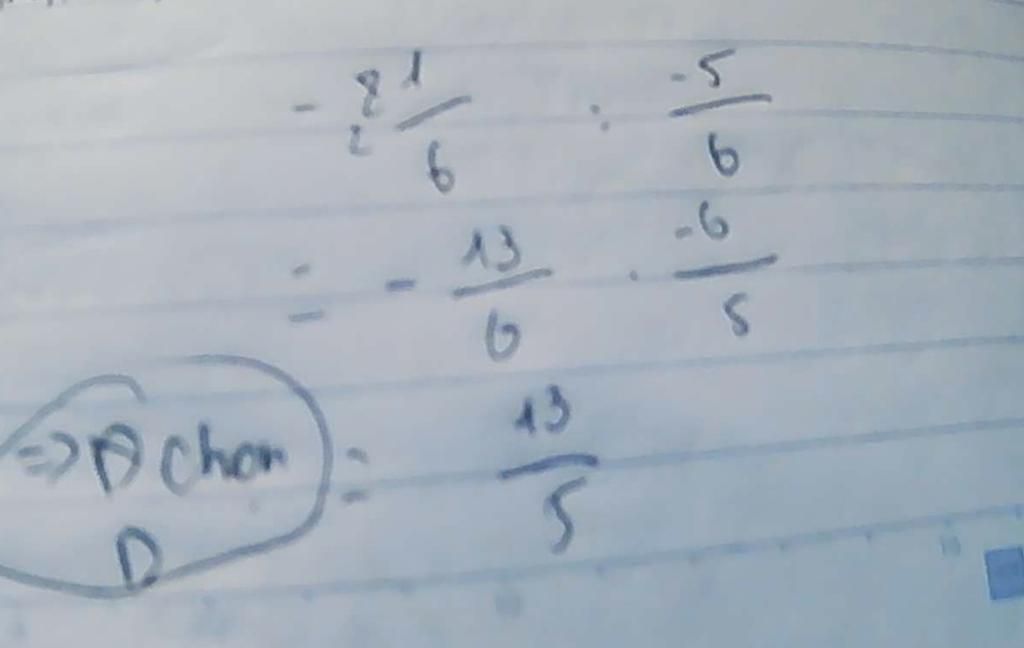 - 2 1/6 : -5/6
= - 13/6 . -6/5
= 13/5
=> Chọn
D